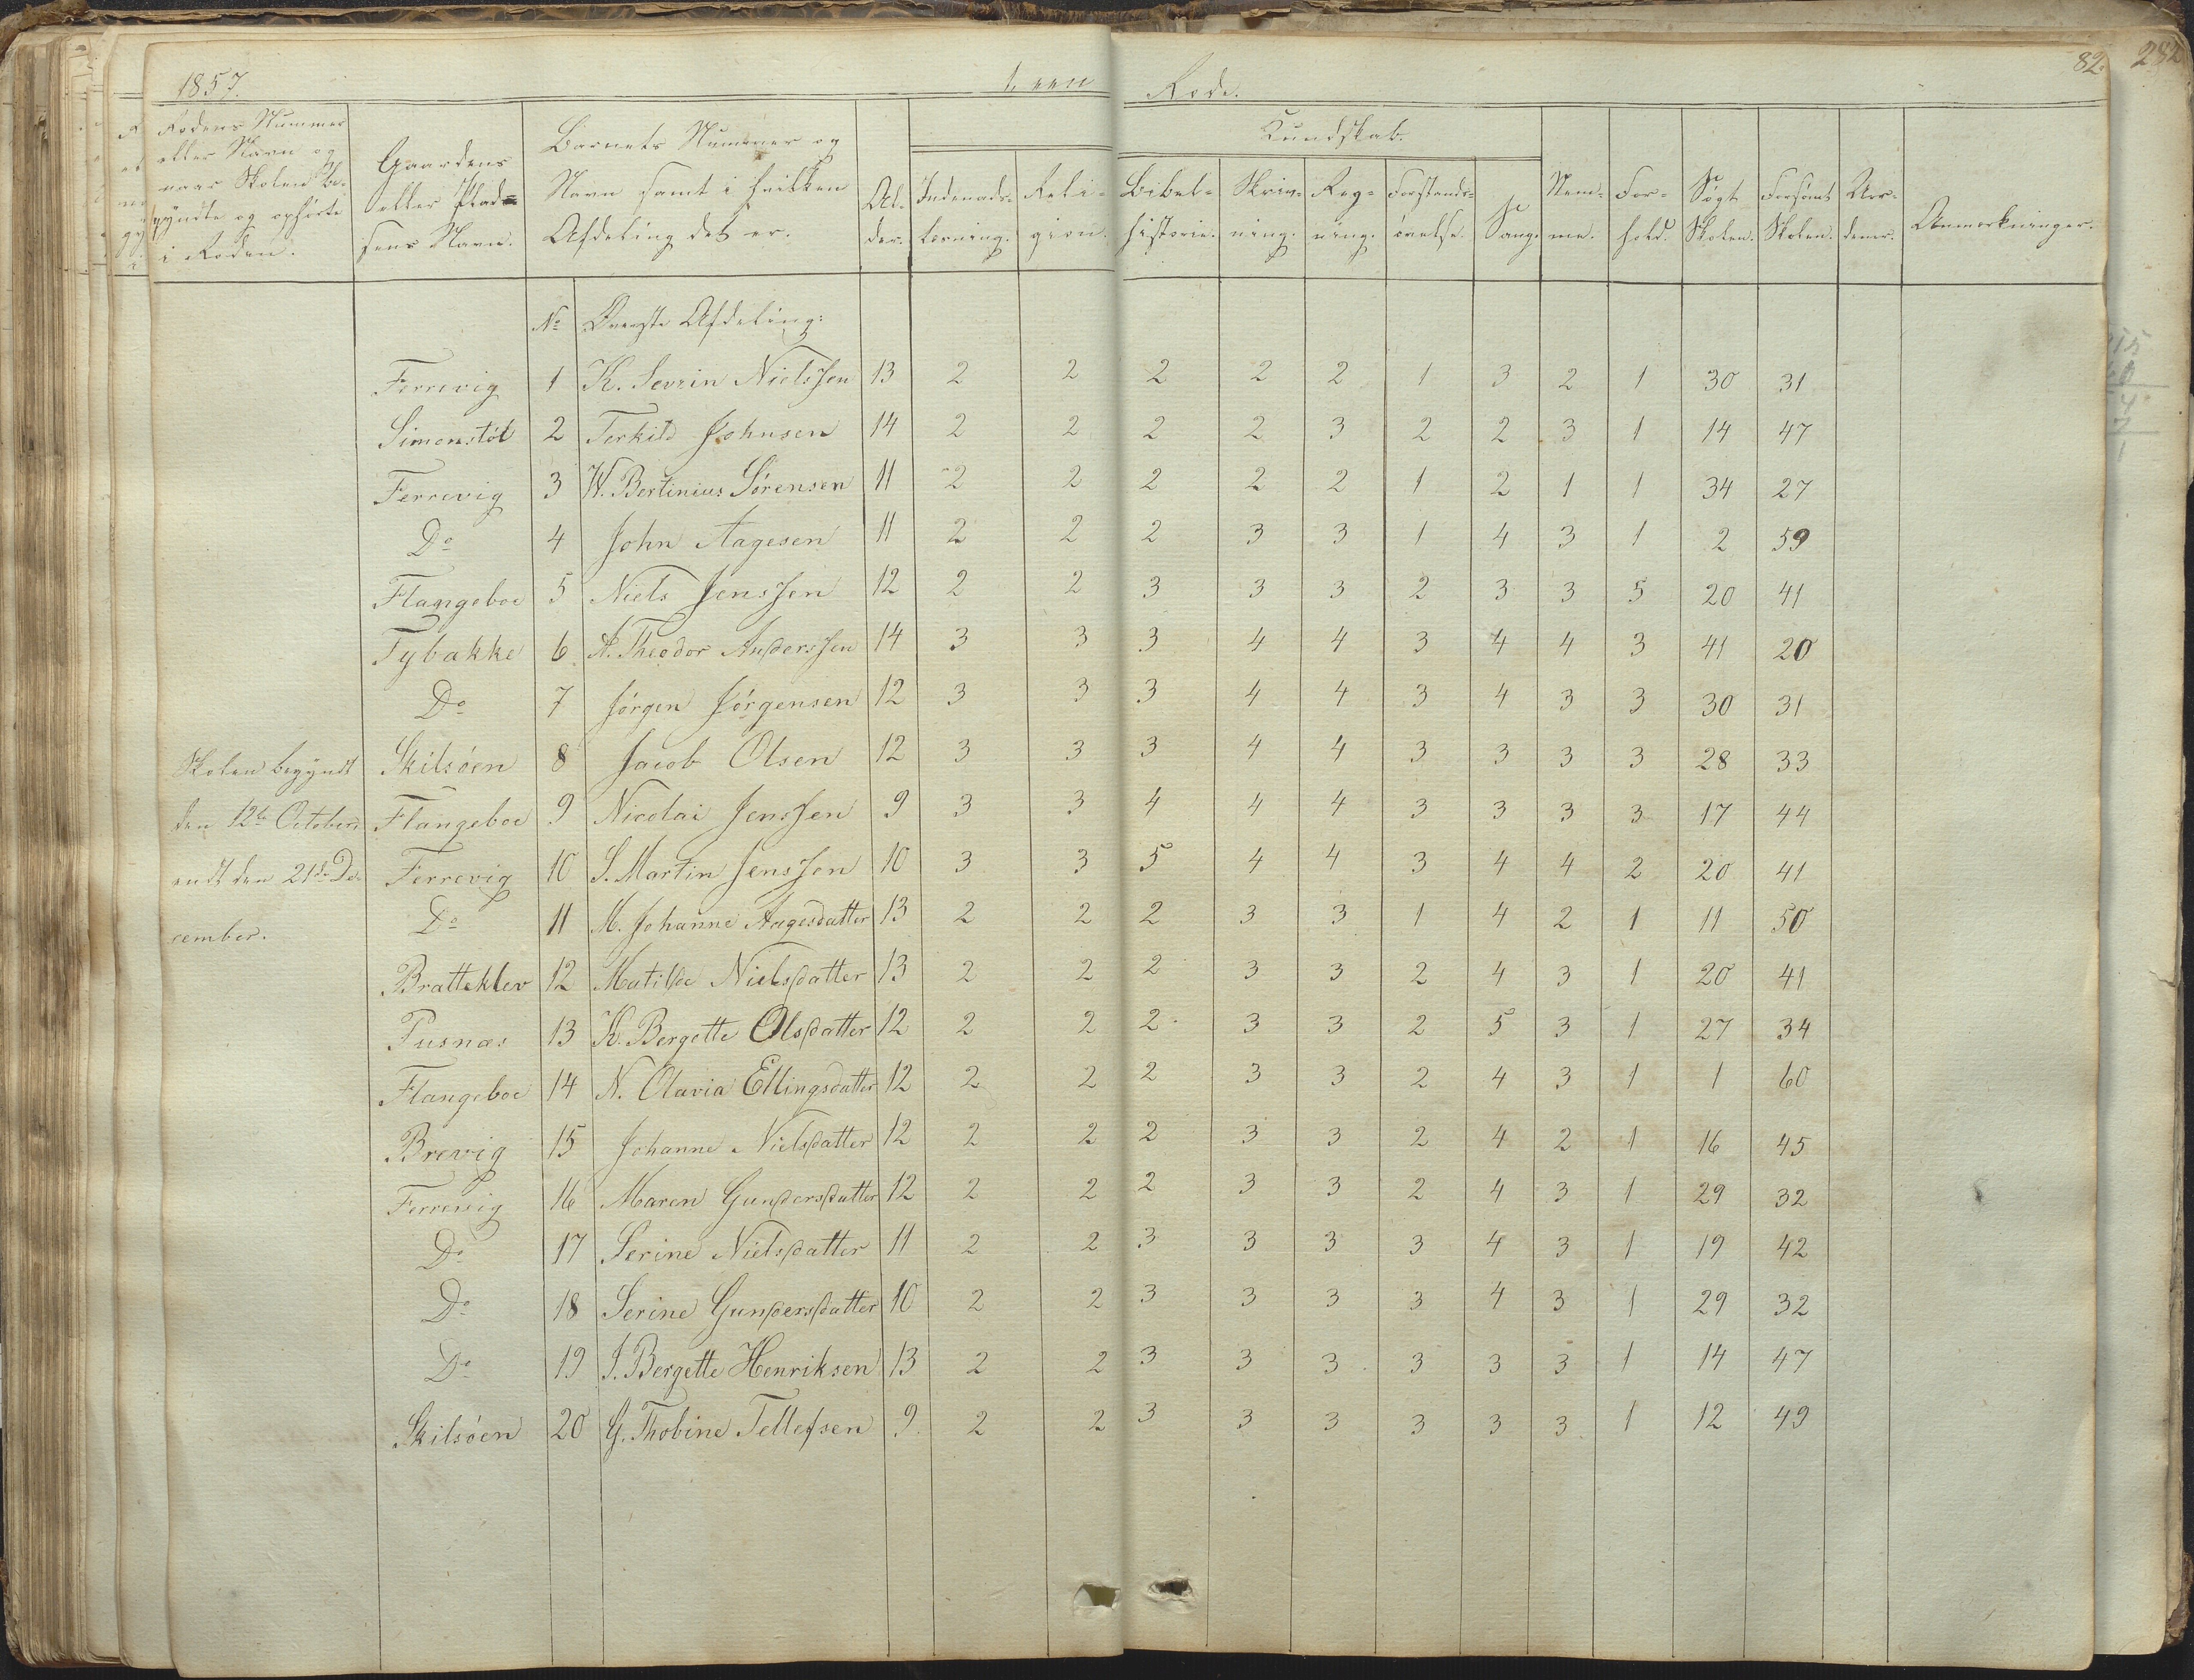 1857. Rode.
82. 282
Rodens Nummer eller Navn og naar Skolen begyndte og ophørte i Roden.
Gaardens eller Pladsens Navn.
Barnets Nummer og Navn samt i hvilken Afdeling det er.
Alder.
Kundskab.
Indenadslæsning. Religion. Bibelhistorie. Skrivning. Regning. Forstandsøvelse. Sang. Nemme. Forhold. Søgt Skolen. Forsømt Skolen. Anmerkninger.
No Øverste Afdeling:
Ferrevig 1 K. Sevrin Nielssen 13 2 2 2 2 2 1 3 2 1 30 31
Simonstøl 2 Terkild Johnsen 14 2 2 2 2 3 2 2 3 1 14 47
Ferrevig 3 W. Bertinius Sørensen 11 2 2 2 2 2 1 2 1 1 34 27
Do 4 John Aagesen 11 2 2 2 3 3 1 4 3 1 2 59
Flangeboe 5 Niels Jenssen 12 2 2 3 3 3 2 3 3 5 20 41
Tybakke 6 A. Theodor Anderssen 14 3 3 3 4 4 3 4 4 3 41 20
Do 7 Jørgen Jørgensen 12 3 3 3 4 4 3 4 3 3 30 31
Skolen begyndt Skilsøen 8 Jacob Olsen 12 3 3 3 4 4 3 3 3 3 28 33
den 12te October Flangeboe 9 Nicolai Jenssen 9 3 3 4 4 4 3 3 3 3 17 44
endt den 21de De- Ferrevig 10 S. Martin Jenssen 10 3 3 5 4 4 3 4 4 2 20 41
cember. Do 11 M. Johanne Aagesdatter 13 2 2 2 3 3 1 4 2 1 11 50
Bratteklev 12 Matilde Nielsdatter 13 2 2 2 3 3 2 4 3 1 20 41
Pusnæs 13 K. Bergette Olsdatter 12 2 2 2 3 3 2 5 3 1 27 34
Flangeboe 14 N. Olavia Ellingsdatter 12 2 2 2 3 3 2 4 3 1 1 60
Brevig 15 Johanne Nielsdatter 12 2 2 2 3 3 2 4 2 1 16 45
Ferrevig 16 Maren Gundersdatter 12 2 2 2 3 3 2 4 3 1 29 32
Do 17 Serine Nielsdatter 11 2 2 3 3 3 3 4 3 1 19 42
Do 18 Serine Gundersdatter 10 2 2 3 3 3 3 4 3 1 29 32
Do 19 I. Bergette Henriksen 13 2 2 3 3 3 3 3 3 1 14 47
Skilsøen 20 G. Thobine Tellefsen 9 2 2 3 3 3 3 3 3 1 12 49